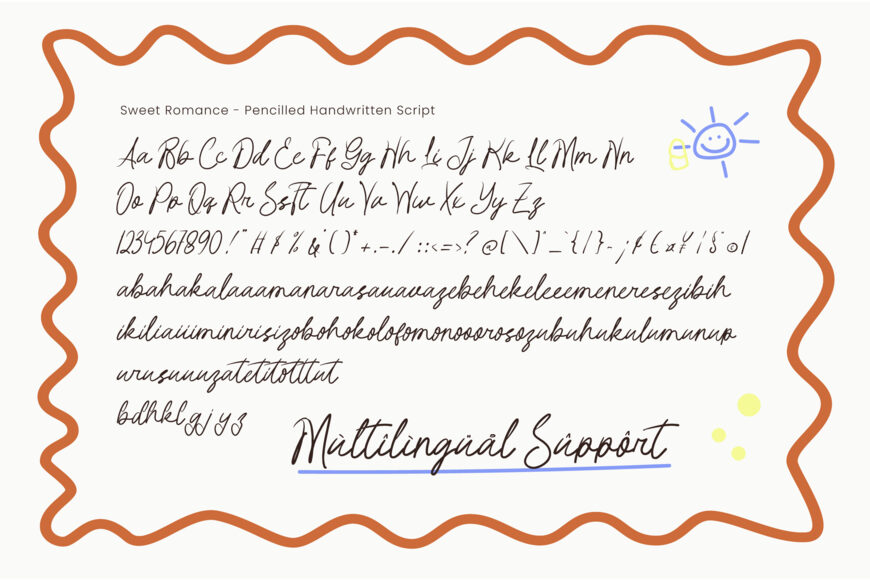 Sweet Romance - Pencilled Handwritten Script
Aa Bb Cc Dd Ee Ff Gg Hh Ii Jj Kk Ll Mm Nn
Oo Pp Qq Rr Ss Tt Uu Vv Ww Xx Yy Zz
1234567890!"#$%&'()*+,-./:;<=>?@[\]^_`{|}~¡¢£¤¥¦§¨©
abahakalaaamanarasauavazebehekeleeemeneresezibih
ikiliaiiiminirisizobohokolofomonooorosozubuhukulumunup
urusuuuzatetitotttut
bdhklgjyz
Mùltîlìngüål Sûppôrt